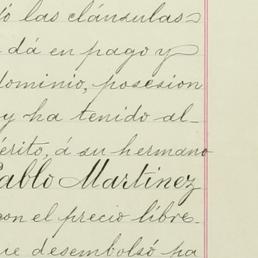 ó las cláusulas
dá en pago y
dominio, posesion
y ha tenido al-
érito, á su hermano
Pablo Martinez
con el precio libre-
ue desembolsó ha